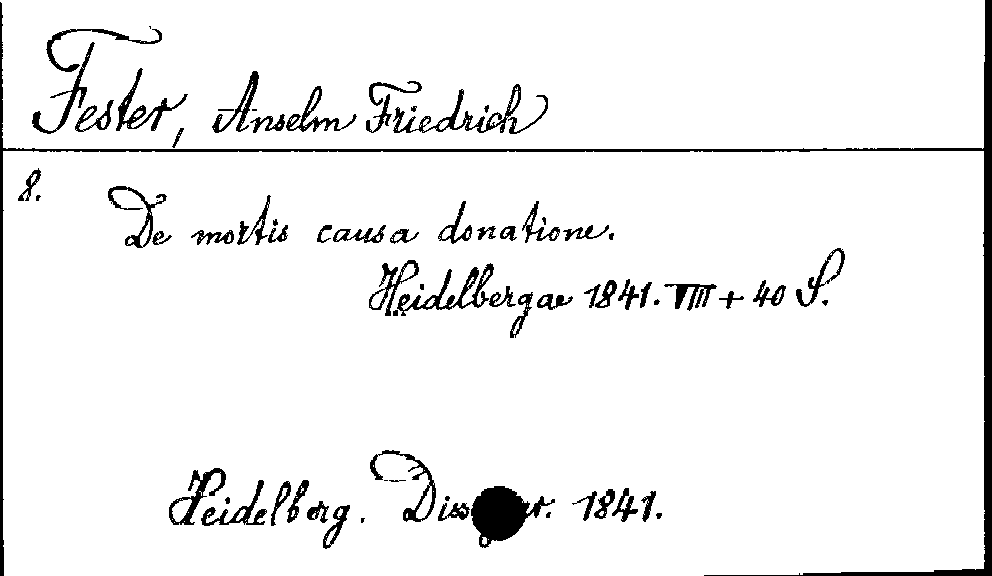 Fester, Anselm Friedrich
8.
De mortis causa donatione.
Heidelbergae 1841. VIII + 40 S.
Heidelberg. 1841.